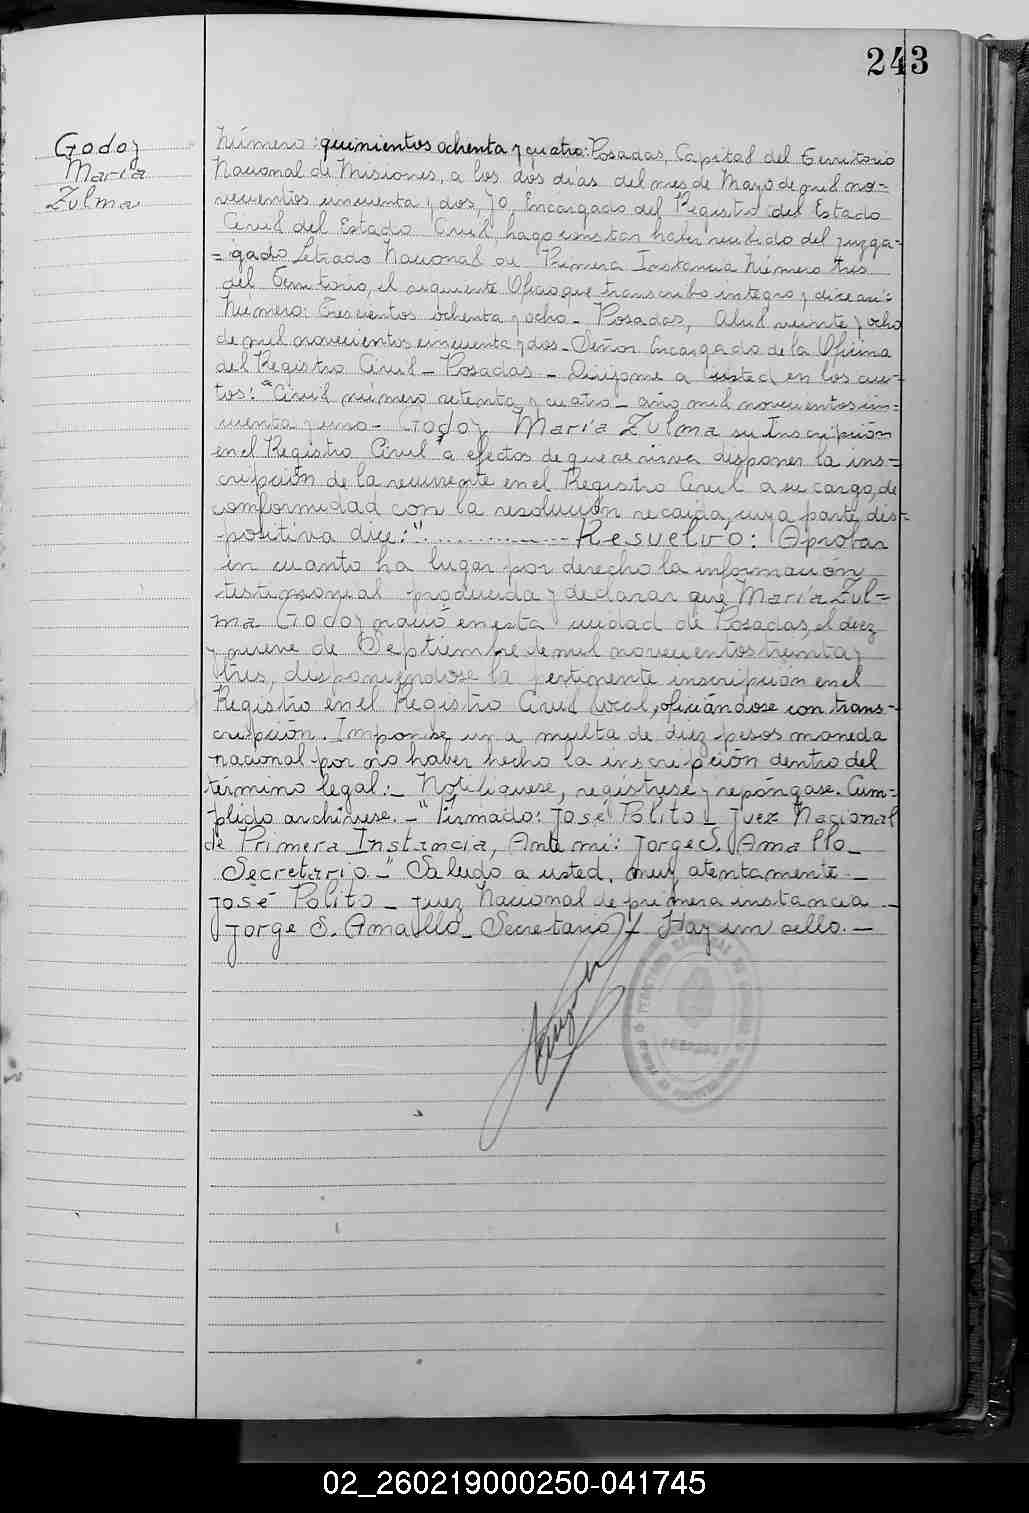 243
Godoy
María
Zulma
Número: quinientos ochenta y cuatro: Posadas, Capital del Territorio
Nacional de Misiones, a los dos días del mes de Mayo de mil no=
vecientos cincuenta y dos, Yo, Encargado del Registro del Estado
Civil del Estado Civil, hago constar haber recibido del juzga=
=gado Letrado Nacional de Primera Instancia Número tres
del Territorio, el siguiente Oficio que transcribo integro y dice así:
Número: Trescientos ochenta y ocho - Posadas, Abril veinte y ocho
de mil novecientos cincuenta y dos - Señor Encargado de la Oficina
del Registro Civil - Posadas - Dirijome a usted en los au=
tos: "Civil número setenta y cuatro - año mil novecientos cin=
cuenta y uno - Godoy María Zulma su Inscripción
en el Registro Civil" a efectos de que se sirva disponer la ins=
cripción de la recurrente en el Registro Civil a su cargo, de
comformidad con la resolución recaida, cuya parte dis-
-positiva dice:"............ - Resuelvo: Aprobar
en cuanto ha lugar por derecho la información
testimonial producida y declarar que María Zul=
ma Godoy nació en esta ciudad de Posadas, el diez
y nueve de Septiembre de mil novecientos treinta y
tres, disponiéndose la pertinente inscripción en el
Registro en el Registro Civil local, oficiándose con trans-
cripción. Imponse un a multa de diez pesos moneda
nacional por no haber hecho la inscripción dentro del
término legal.- Notifiquese, regístrese y repóngase. Cum=
plido archívese. - "Firmado: José Pólito - Juez Nacional
de Primera Instancia, Ante mi: Jorge S. Amallo -
Secretario. -" Saludo a usted. muy atentamente. -
José Pólito - Juez Nacional de primera instancia -
Jorge S. Amallo - Secretario - Hay un sello. -
02_260219000250-041745